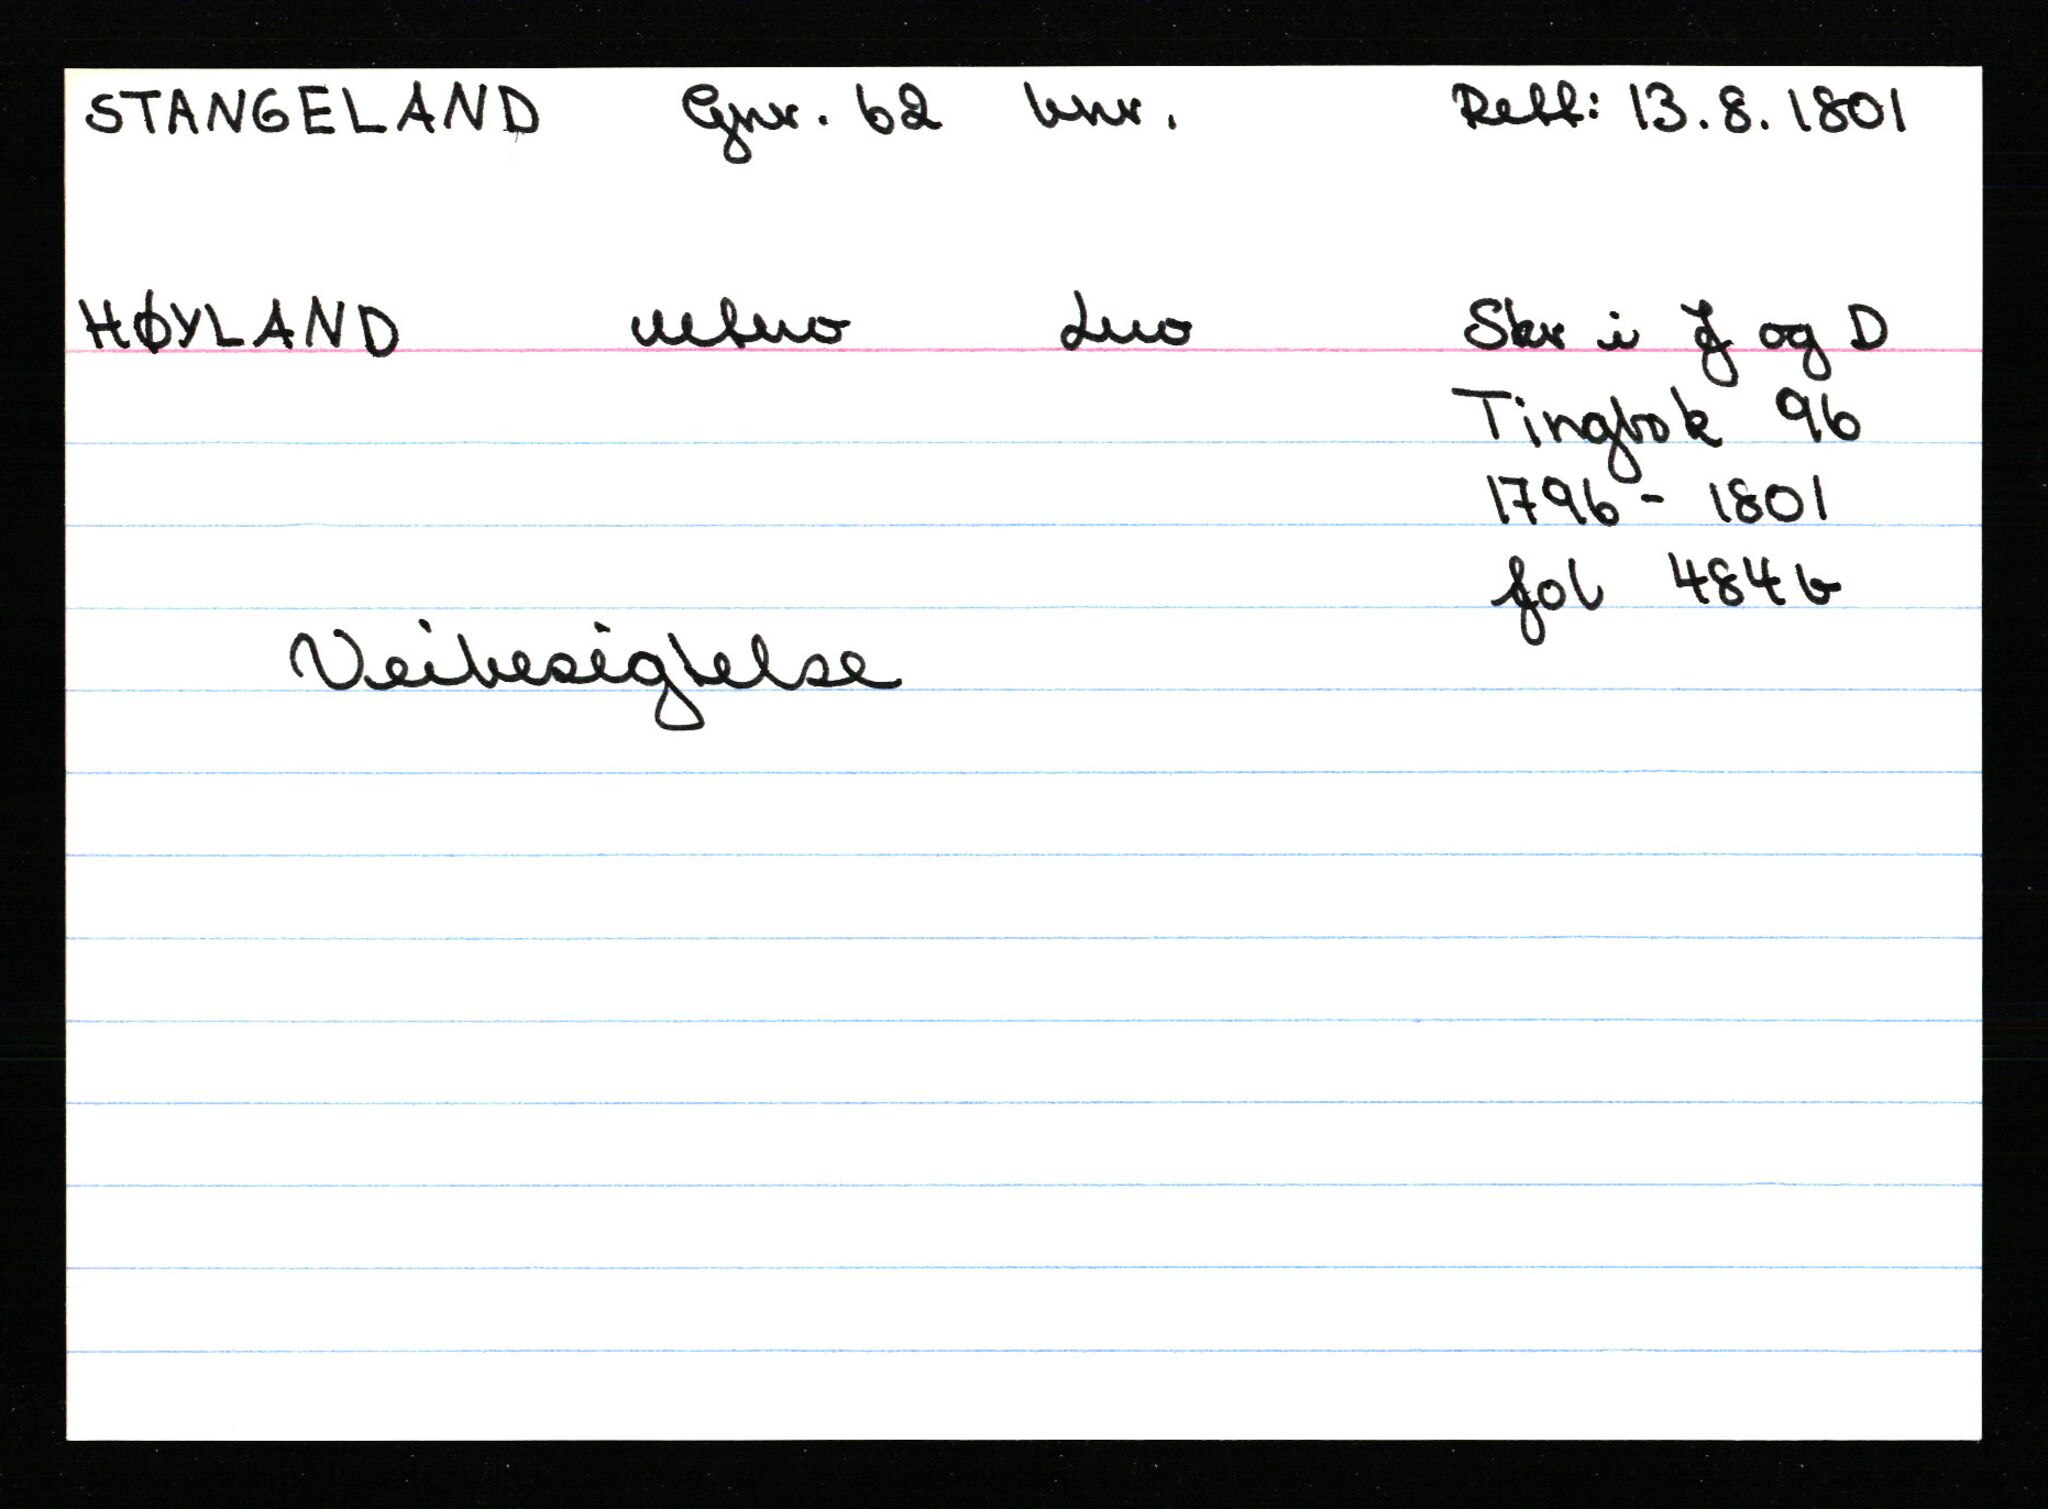 STANGELAND Gnr. 62 bnr. Rett: 13.8.1801
HØYLAND utno dno Skr i J og D
Tingbok 96
1796 - 1801
fol 484b
Veibesigtelse